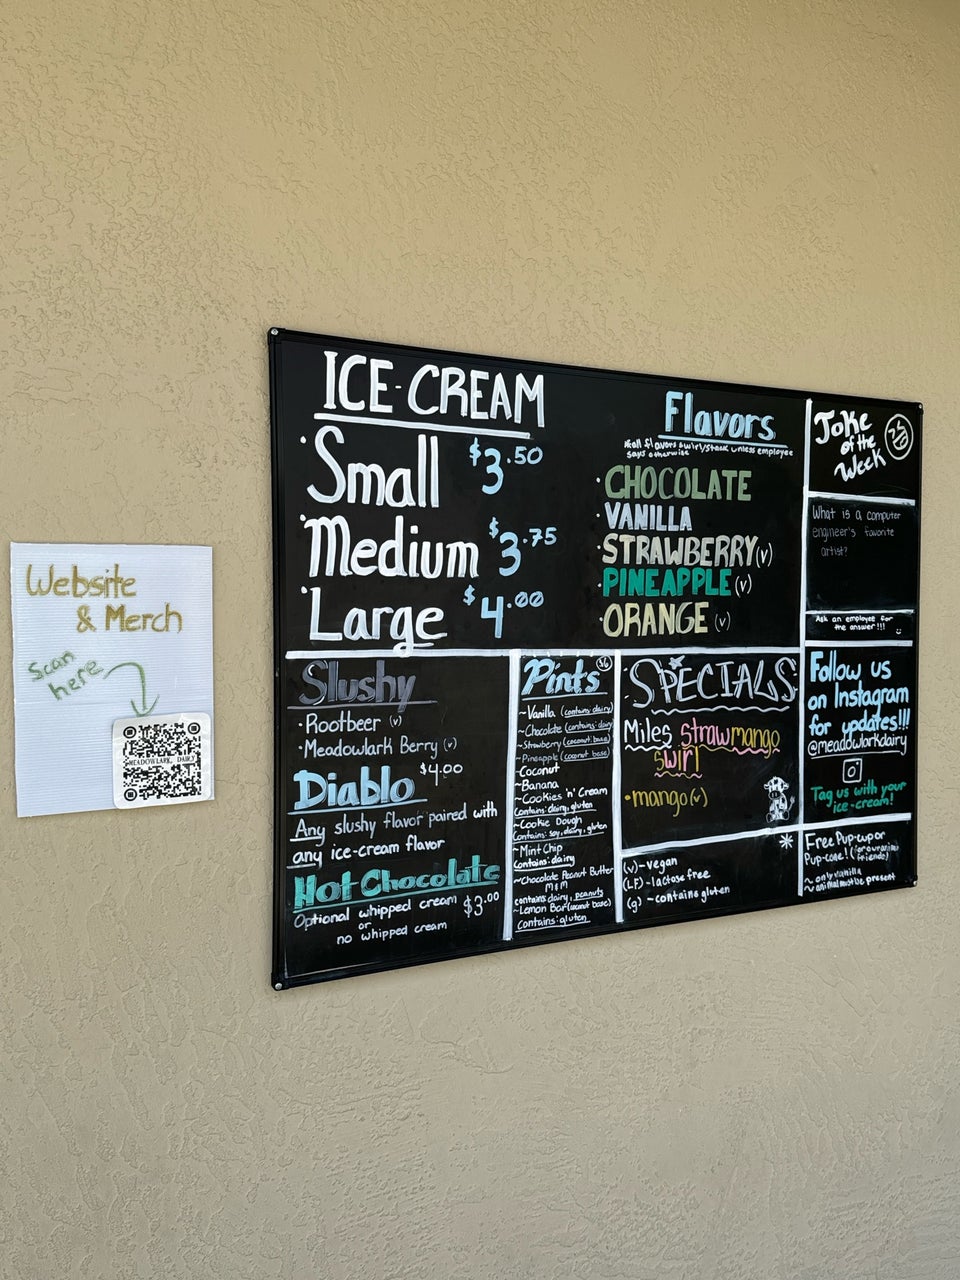 ICE-CREAM
Small $3.50
Medium $3.75
Large $4.00
Flavors
*all flavors swirl/stack unless employee
says otherwise
CHOCOLATE
VANILLA
STRAWBERRY (v)
PINEAPPLE (v)
ORANGE (v)
Joke
of the
Week
What is a computer
engineer's favorite
artist?
Ask an employee for
the answer!!!
Slushy
Rootbeer (v)
Meadowlark Berry (v)
$4.00
Diablo
Any slushy flavor paired with
any ice-cream flavor
Hot Chocolate
Optional whipped cream $3.00
or
no whipped cream
Pints $6
~Vanilla (contains: dairy)
~Chocolate (contains: dairy)
~Strawberry (coconut base)
~Pineapple (coconut base)
~Coconut
~Banana
~Cookies 'n' Cream
Contains: dairy, gluten
~Cookie Dough
Contains: soy, dairy, gluten
~Mint Chip
Contains: dairy
~Chocolate Peanut Butter
M&M
contains dairy, peanuts
~Lemon Bar (coconut base)
Contains: gluten
SPECIALS
Miles strawmango
swirl
mango (v)
*
(v) - vegan
(LF) - lactose free
(g) - contains gluten
Follow us
on Instagram
for updates!!!
@meadowlarkdairy
Tag us with your
ice-cream!
Free Pup-cup or
Pup-cone! (for our animal
friends)
~ only vanilla
~ animal must be present
Website
& Merch
Scan
here
MEADOWLARK DAIRY